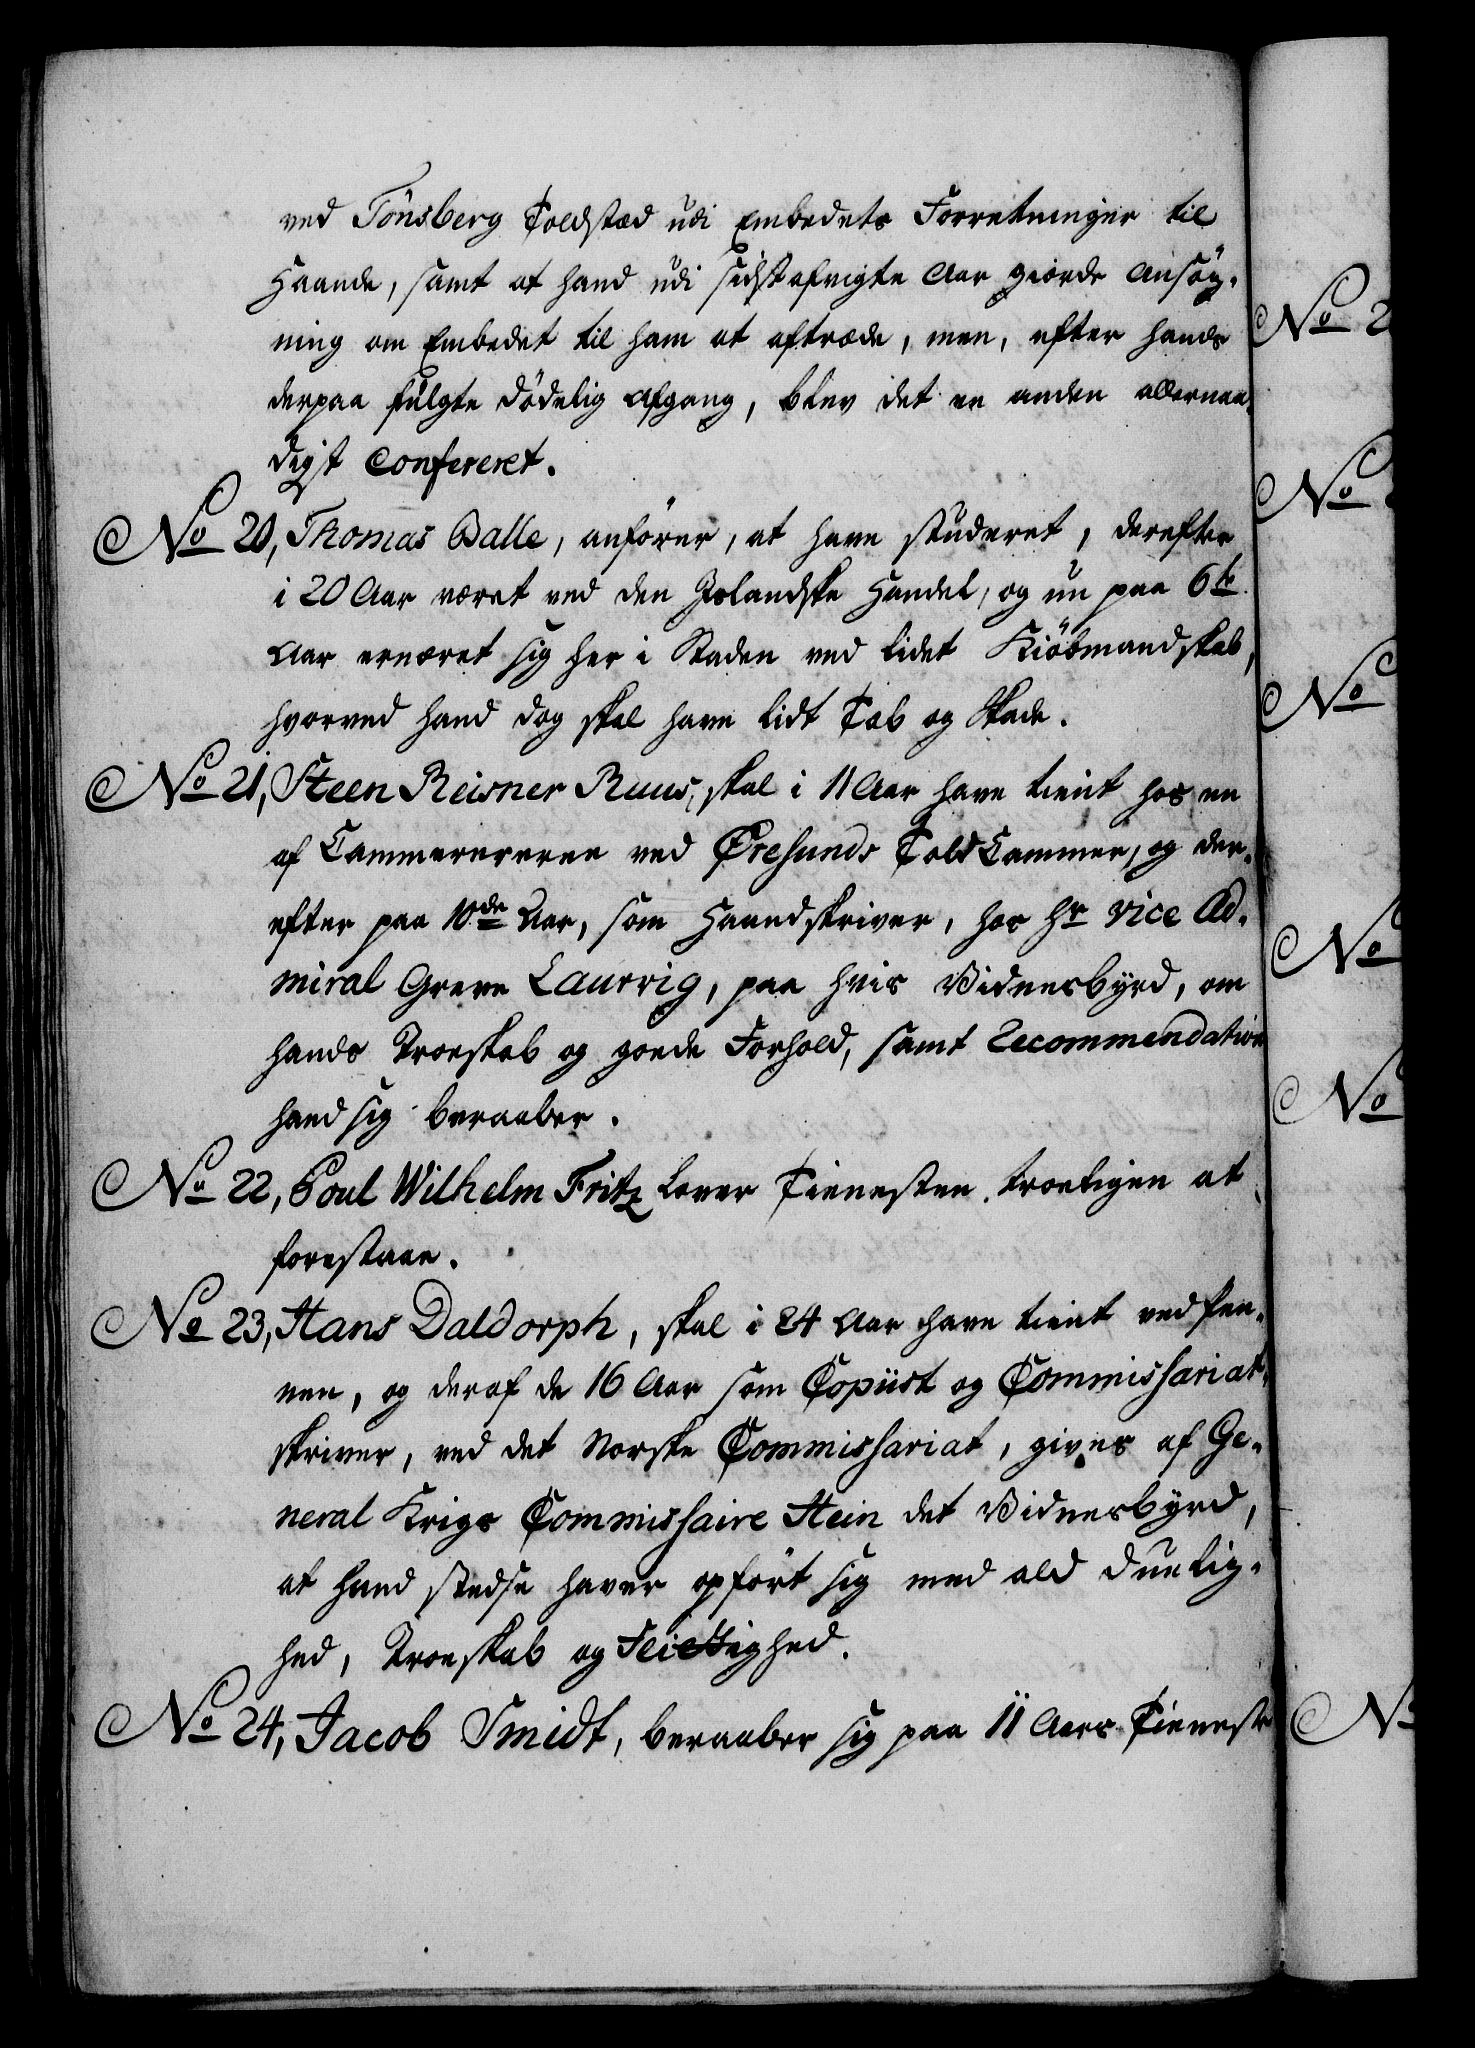 ved Tönsberg Toldstæd udi Embedets Forretninger til
Haande, samt at hand udi sidstafvigte Aar giorde Ansøg-
ning om Embedet til ham at aftræde, men, efter hands
derpaa fulgte Dödelig Afgang, blev det en anden allernaa-
digst Confereret.
No 20, Thomas Balle, anfører, at have studeret, derefter
i 20 Aar været ved den Islandske Handel, og nu paa 6te
Aar ernæret sig her i Staden ved lidet Kiöbmandskab,
hvorved hand dog skal have lidt Tab og Skade.
No 21, Steen Reisner Ruus, skal i 11 Aar have tient hos en
af Cammerererne ved Øresunds Told Cammer, og der-
efter paa 10de Aar, som Haandskriver, hos Hr Vice Ad-
miral Greve Laurvig, paa hvis Vidnesbyrd, om
hands Troeskab og goede Forhold, samt Recommendation
hand sig beraaber.
No 22, Poul Wilhelm Fritz Lover Tienesten troeligen at
forestaae.
No 23, Hans Daldorph, skal i 24 Aar have tient ved Pen-
nen, og deraf de 16 Aar som Copiist og Commissariat-
skriver, ved det Norske Commissariat, gives af Ge-
neral Krigs Commissaire Stein det Vidnesbyrd,
at hand stedse haver opført sig med ald Duelig-
hed, Troeskab og Flittighed.
No 24, Jacob Smidt, beraaber sig paa 11 Aars Tieneste
No 2
No
No
No
No
No